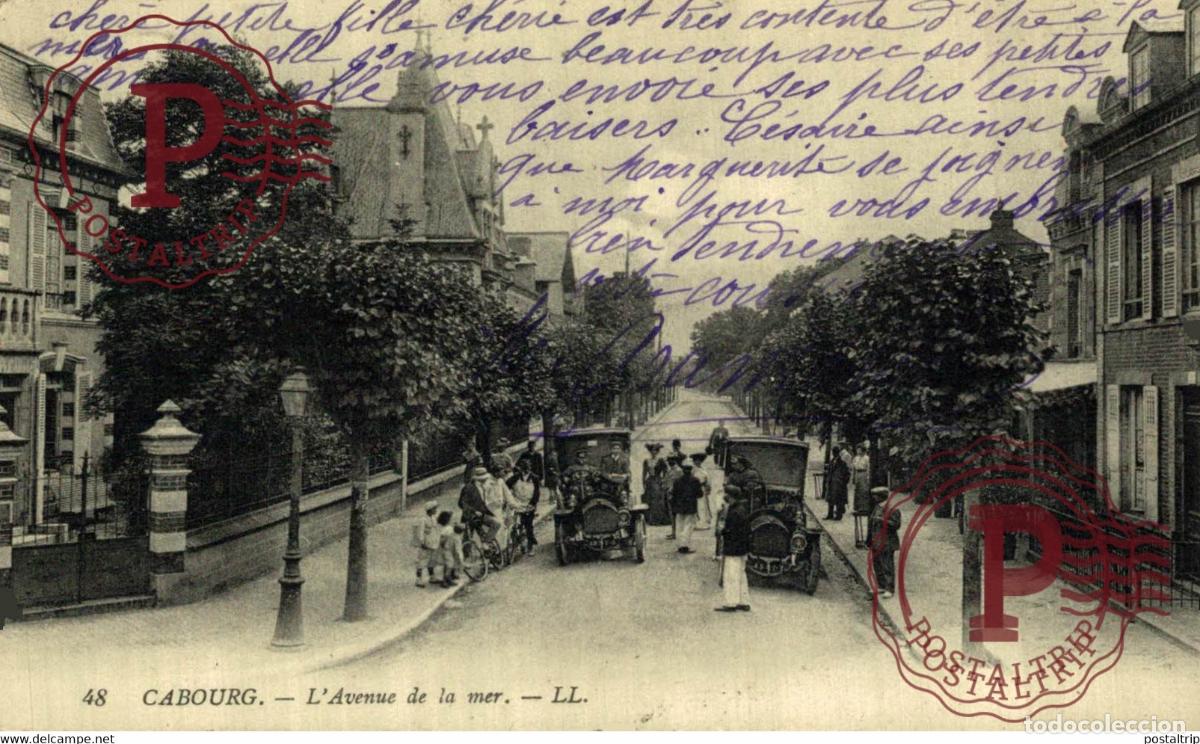 chère petite fille chérie est très contente d'être à la
mer elle s'amuse beaucoup avec ses petites
elle vous envoie ses plus tendres
baisers .. Césaire ainsi
que Marguerite se joignent
à moi pour vous embrasser
bien tendrement
tout cœur
P
POSTALTRIP
P
POSTALTRIP
POSTALTRIP
48 CABOURG. — L'Avenue de la mer. — LL.
todocoleccion
postaltrip